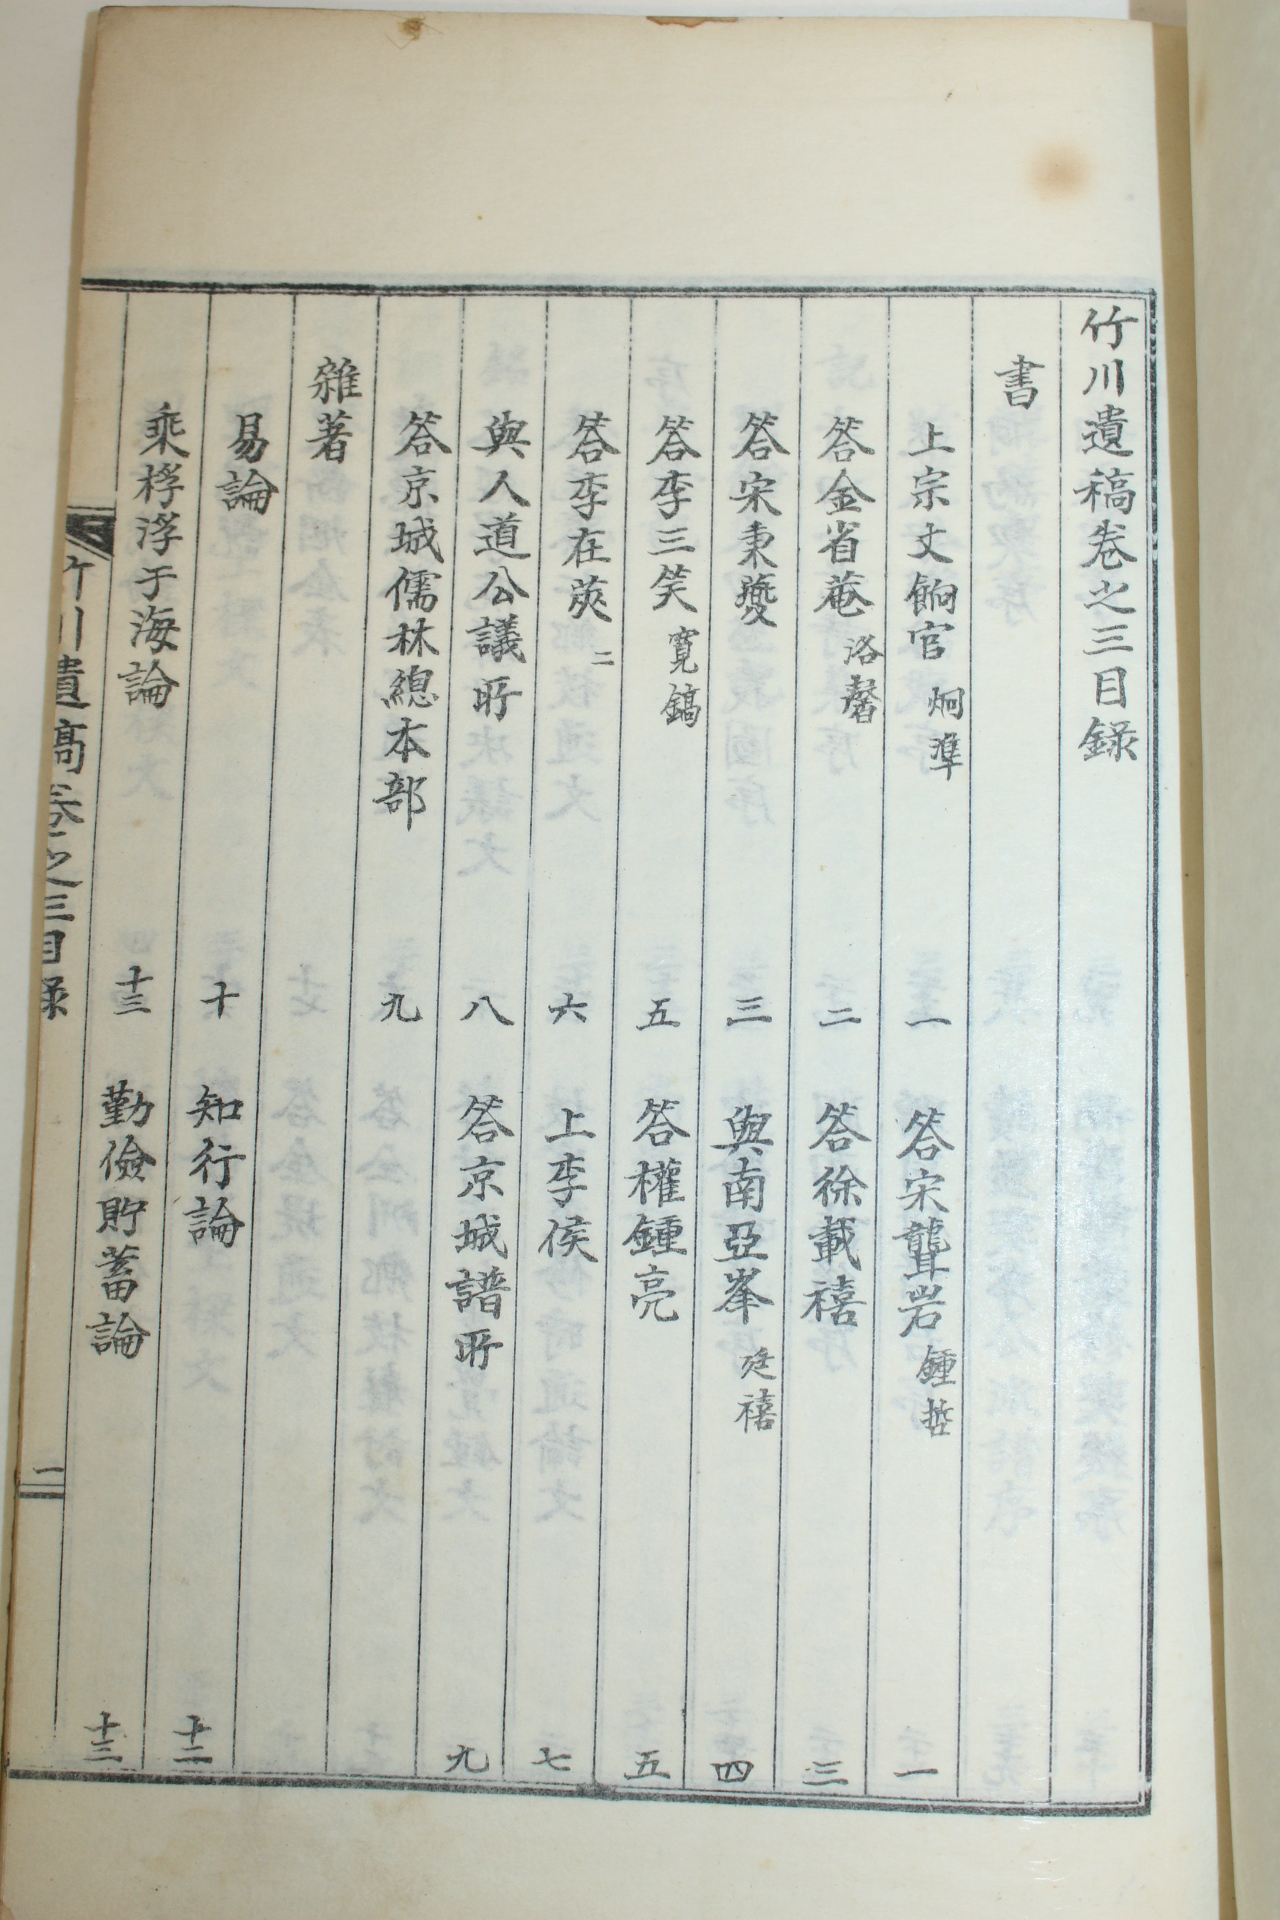 竹川遺稿卷之三目録
書
上宗丈餉官 炯準 一 答宋聾岩 鍾喆 一
答金省菴 洛馨 二 答徐載禧 三
答宋秉夔 三 與南亞峯 廷禧 四
答李三笑 寬鎬 五 答權鍾亮 五
答李在莢 二 六 上李侯 七
與人道公議所 八 答京城譜所 九
答京城儒林總本部 九
雜著
易論 十 知行論 十二
乘桴浮于海論 十三 勤儉貯蓄論 十三
竹川遺稿卷之三目録 一